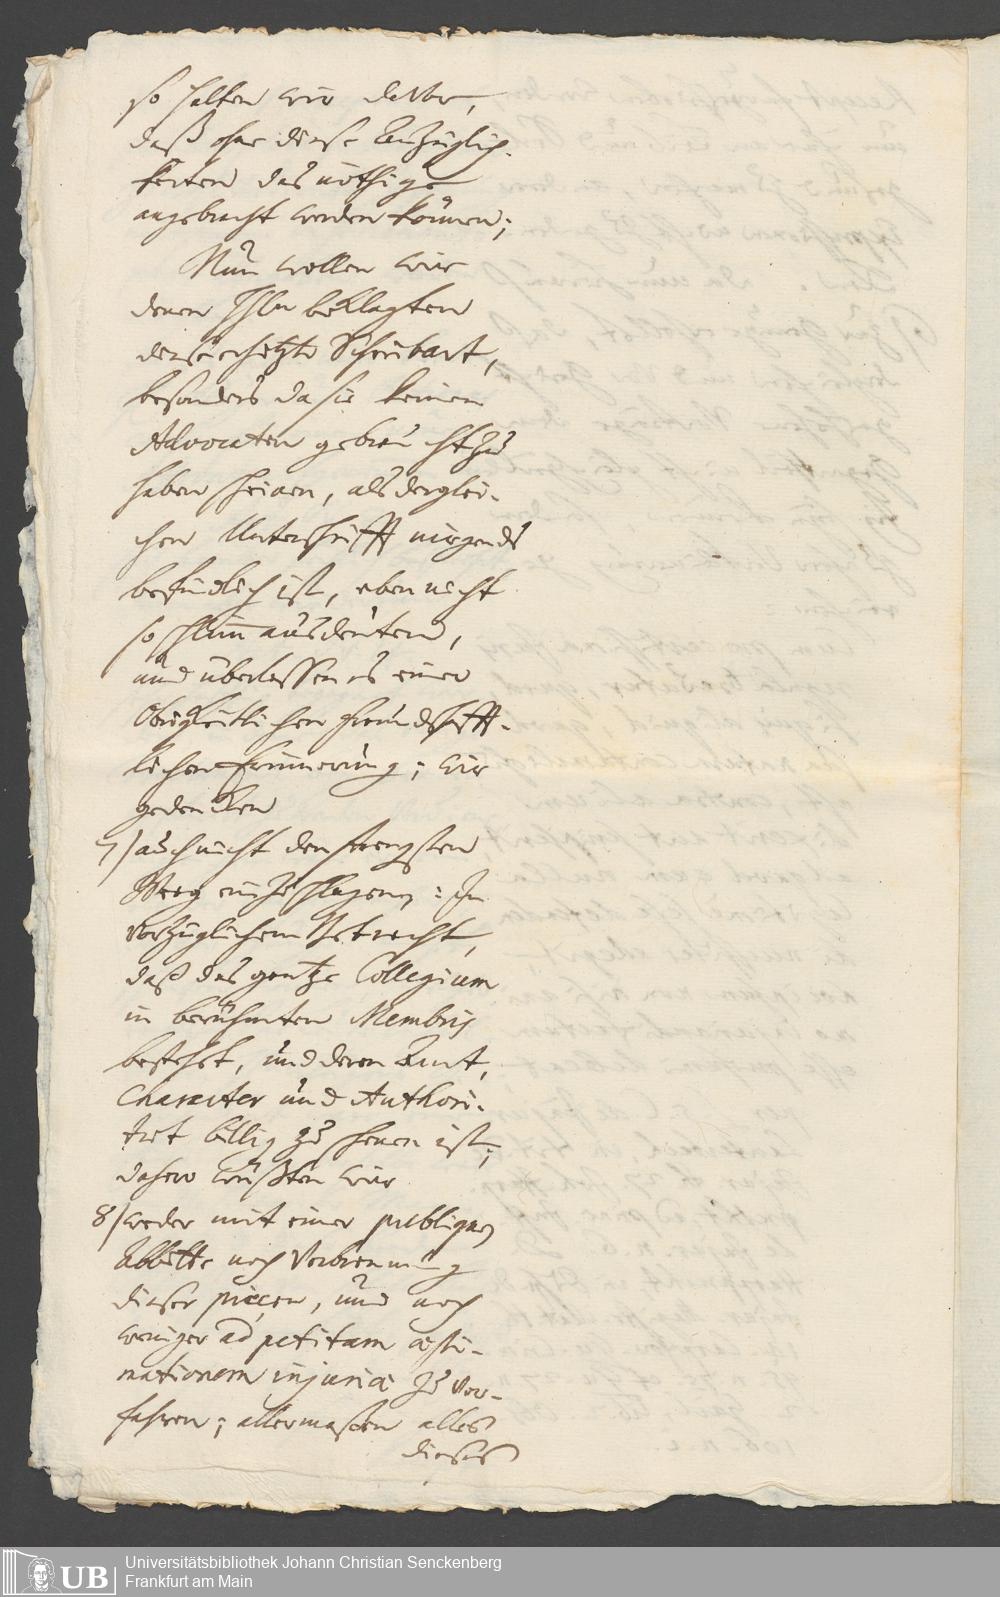 so halten wir davor,
daß ohne diese Anzüglich-
keiten das nöthige
angebracht werden können;
Nun wollen wir
denen Hhln beklagten
diese erhitzte Schreibart,
besonders da sie keinen
Advocaten gebraucht zu
haben scheinen, als derglei-
chen Unterschrifft nirgends
befindlich ist, eben nicht
so schlim̅ ausdeuten,
und überlassen es einer
Obrigkeitlichen freundschafft-
lichen Erinnerung; wir
gedencken
7) auch nicht den strengsten
Weeg einzuschlagen: In
vorzüglichem Betracht,
daß das gantze Collegium
in berühmten Membris
bestehet, und deren Amt,
Character und Authori-
tæt billig zu scheuen ist;
dahero wüßten wir
8) weder mit einer publiquen
Abbitte noch Verbrennung
dieser piecen, und noch
weniger ad petitam æsti-
mationem injuriæ zu ver-
fahren; allermaßen alles
dieses
Universitätsbibliothek Johann Christian Senckenberg
Frankfurt am Main
UB